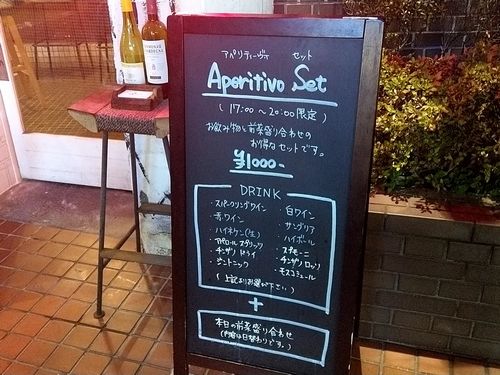 アペリティーヴォ セット
Aperitivo Set
(17:00〜20:00限定)
お飲み物と前菜盛り合わせの
お得なセットです。
¥1000-
DRINK
・スパークリングワイン 白ワイン
・赤ワイン ・サングリア
・ハイネケン(生) ・ハイボール
・アペロール スプリッツ ・スプモーニ
・チンザノ ドライ ・チンザノ ロッソ
・ジントニック ・モスコミュール
(上記よりお選び下さい)
+
本日の前菜盛り合わせ
(内容は日替わりです。)